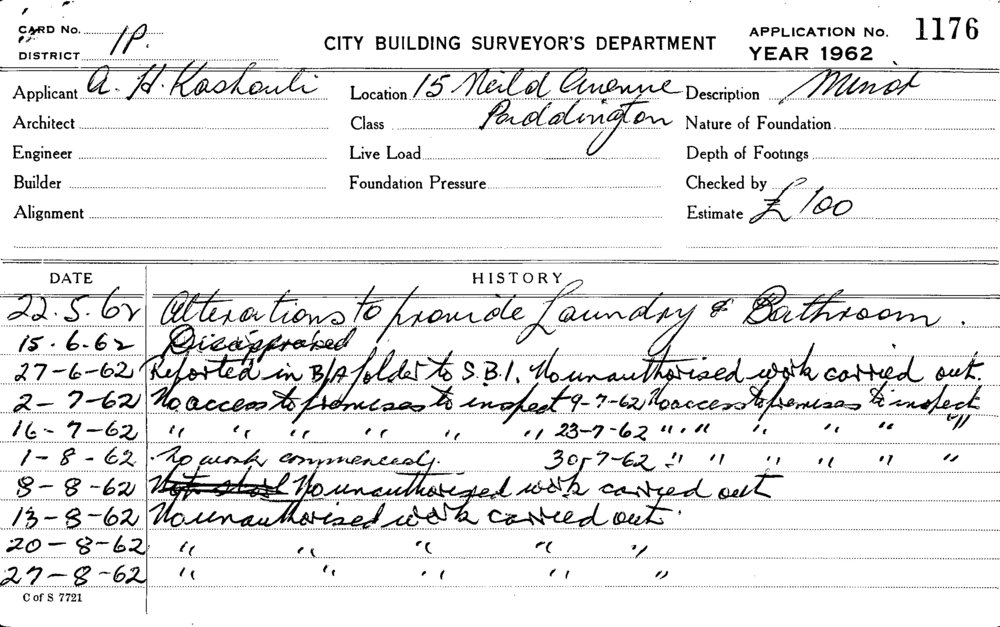 CARD No. 1P. CITY BUILDING SURVEYOR'S DEPARTMENT APPLICATION No. 1176
DISTRICT YEAR 1962
Applicant A. H. Location 15 Neild Avenue Description Minor
Architect Class Paddington Nature of Foundation
Engineer Live Load Depth of Footings
Builder Foundation Pressure Checked by
Alignment Estimate £100
DATE HISTORY
22.5.62 Alterations to provide Laundry & Bathroom.
15.6.62 Disapproved
27-6-62 Reported in B/A folder to S.B.I. No unauthorised work carried out.
2-7-62 No access to premises to inspect 9-7-62 No access to premises to inspect
16-7-62 " " " " " " 23-7-62 " " " " " " "
1-8-62 No work commenced. 30-7-62 " " " " " " "
8-8-62 No unauthorised work carried out
13-8-62 No unauthorised work carried out.
20-8-62 " " " " "
27-8-62 " " " " "
C of S 7721